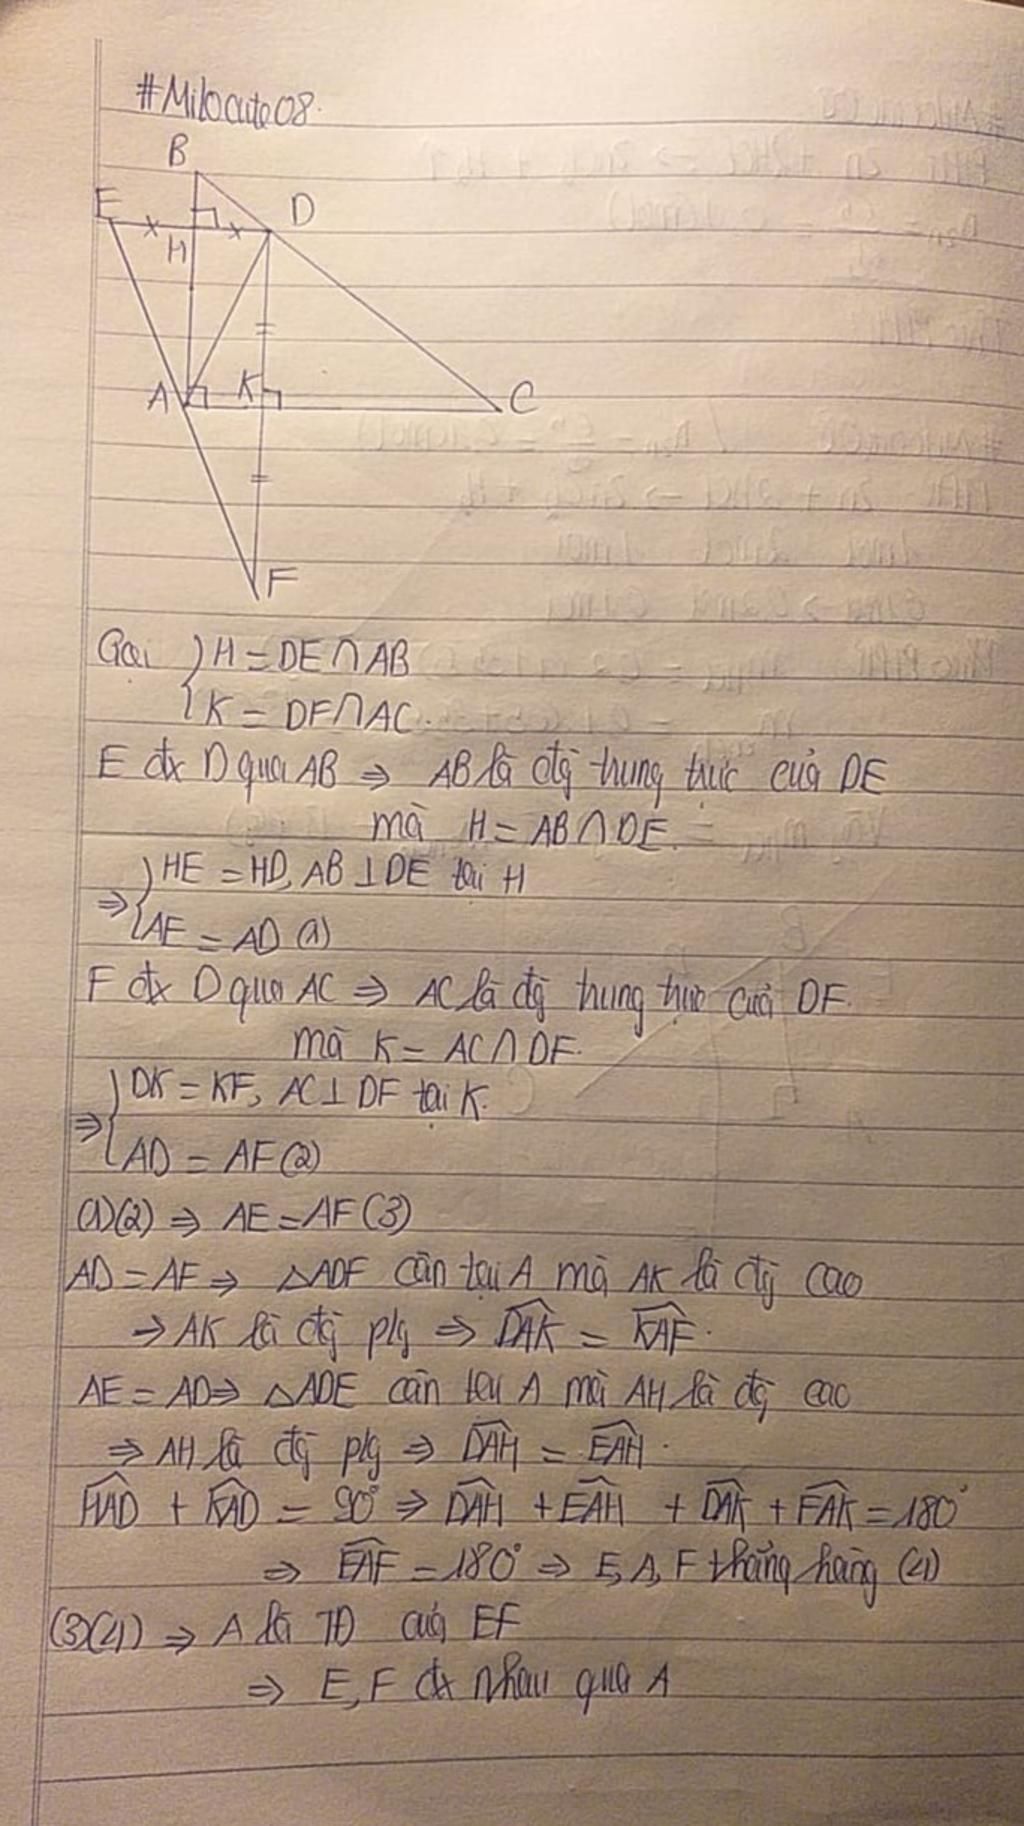 #Milocute08.
B
E
D
H
A
K
C
F
Gọi { H = DE ∩ AB
K = DF ∩ AC.
E đx D qua AB ⇒ AB là đg trung trực của DE
mà H = AB ∩ DE.
⇒ { HE = HD, AB ⊥ DE tại H
AE = AD (1)
F đx D qua AC ⇒ AC là đg trung trực của DF.
mà K = AC ∩ DF.
⇒ { DK = KF, AC ⊥ DF tại K.
AD = AF (2)
(1)(2) ⇒ AE = AF (3)
AD = AF ⇒ △ADF cân tại A mà AK là đg cao
⇒ AK là đg p/g ⇒ \widehat{DAK} = \widehat{KAF}.
AE = AD ⇒ △ADE cân tại A mà AH là đg cao
⇒ AH là đg p/g ⇒ \widehat{DAH} = \widehat{EAH}.
\widehat{HAD} + \widehat{KAD} = 90° ⇒ \widehat{DAH} + \widehat{EAH} + \widehat{DAK} + \widehat{FAK} = 180°
⇒ \widehat{EAF} = 180° ⇒ E, A, F thẳng hàng (4)
(3)(4) ⇒ A là TĐ của EF
⇒ E, F đx nhau qua A